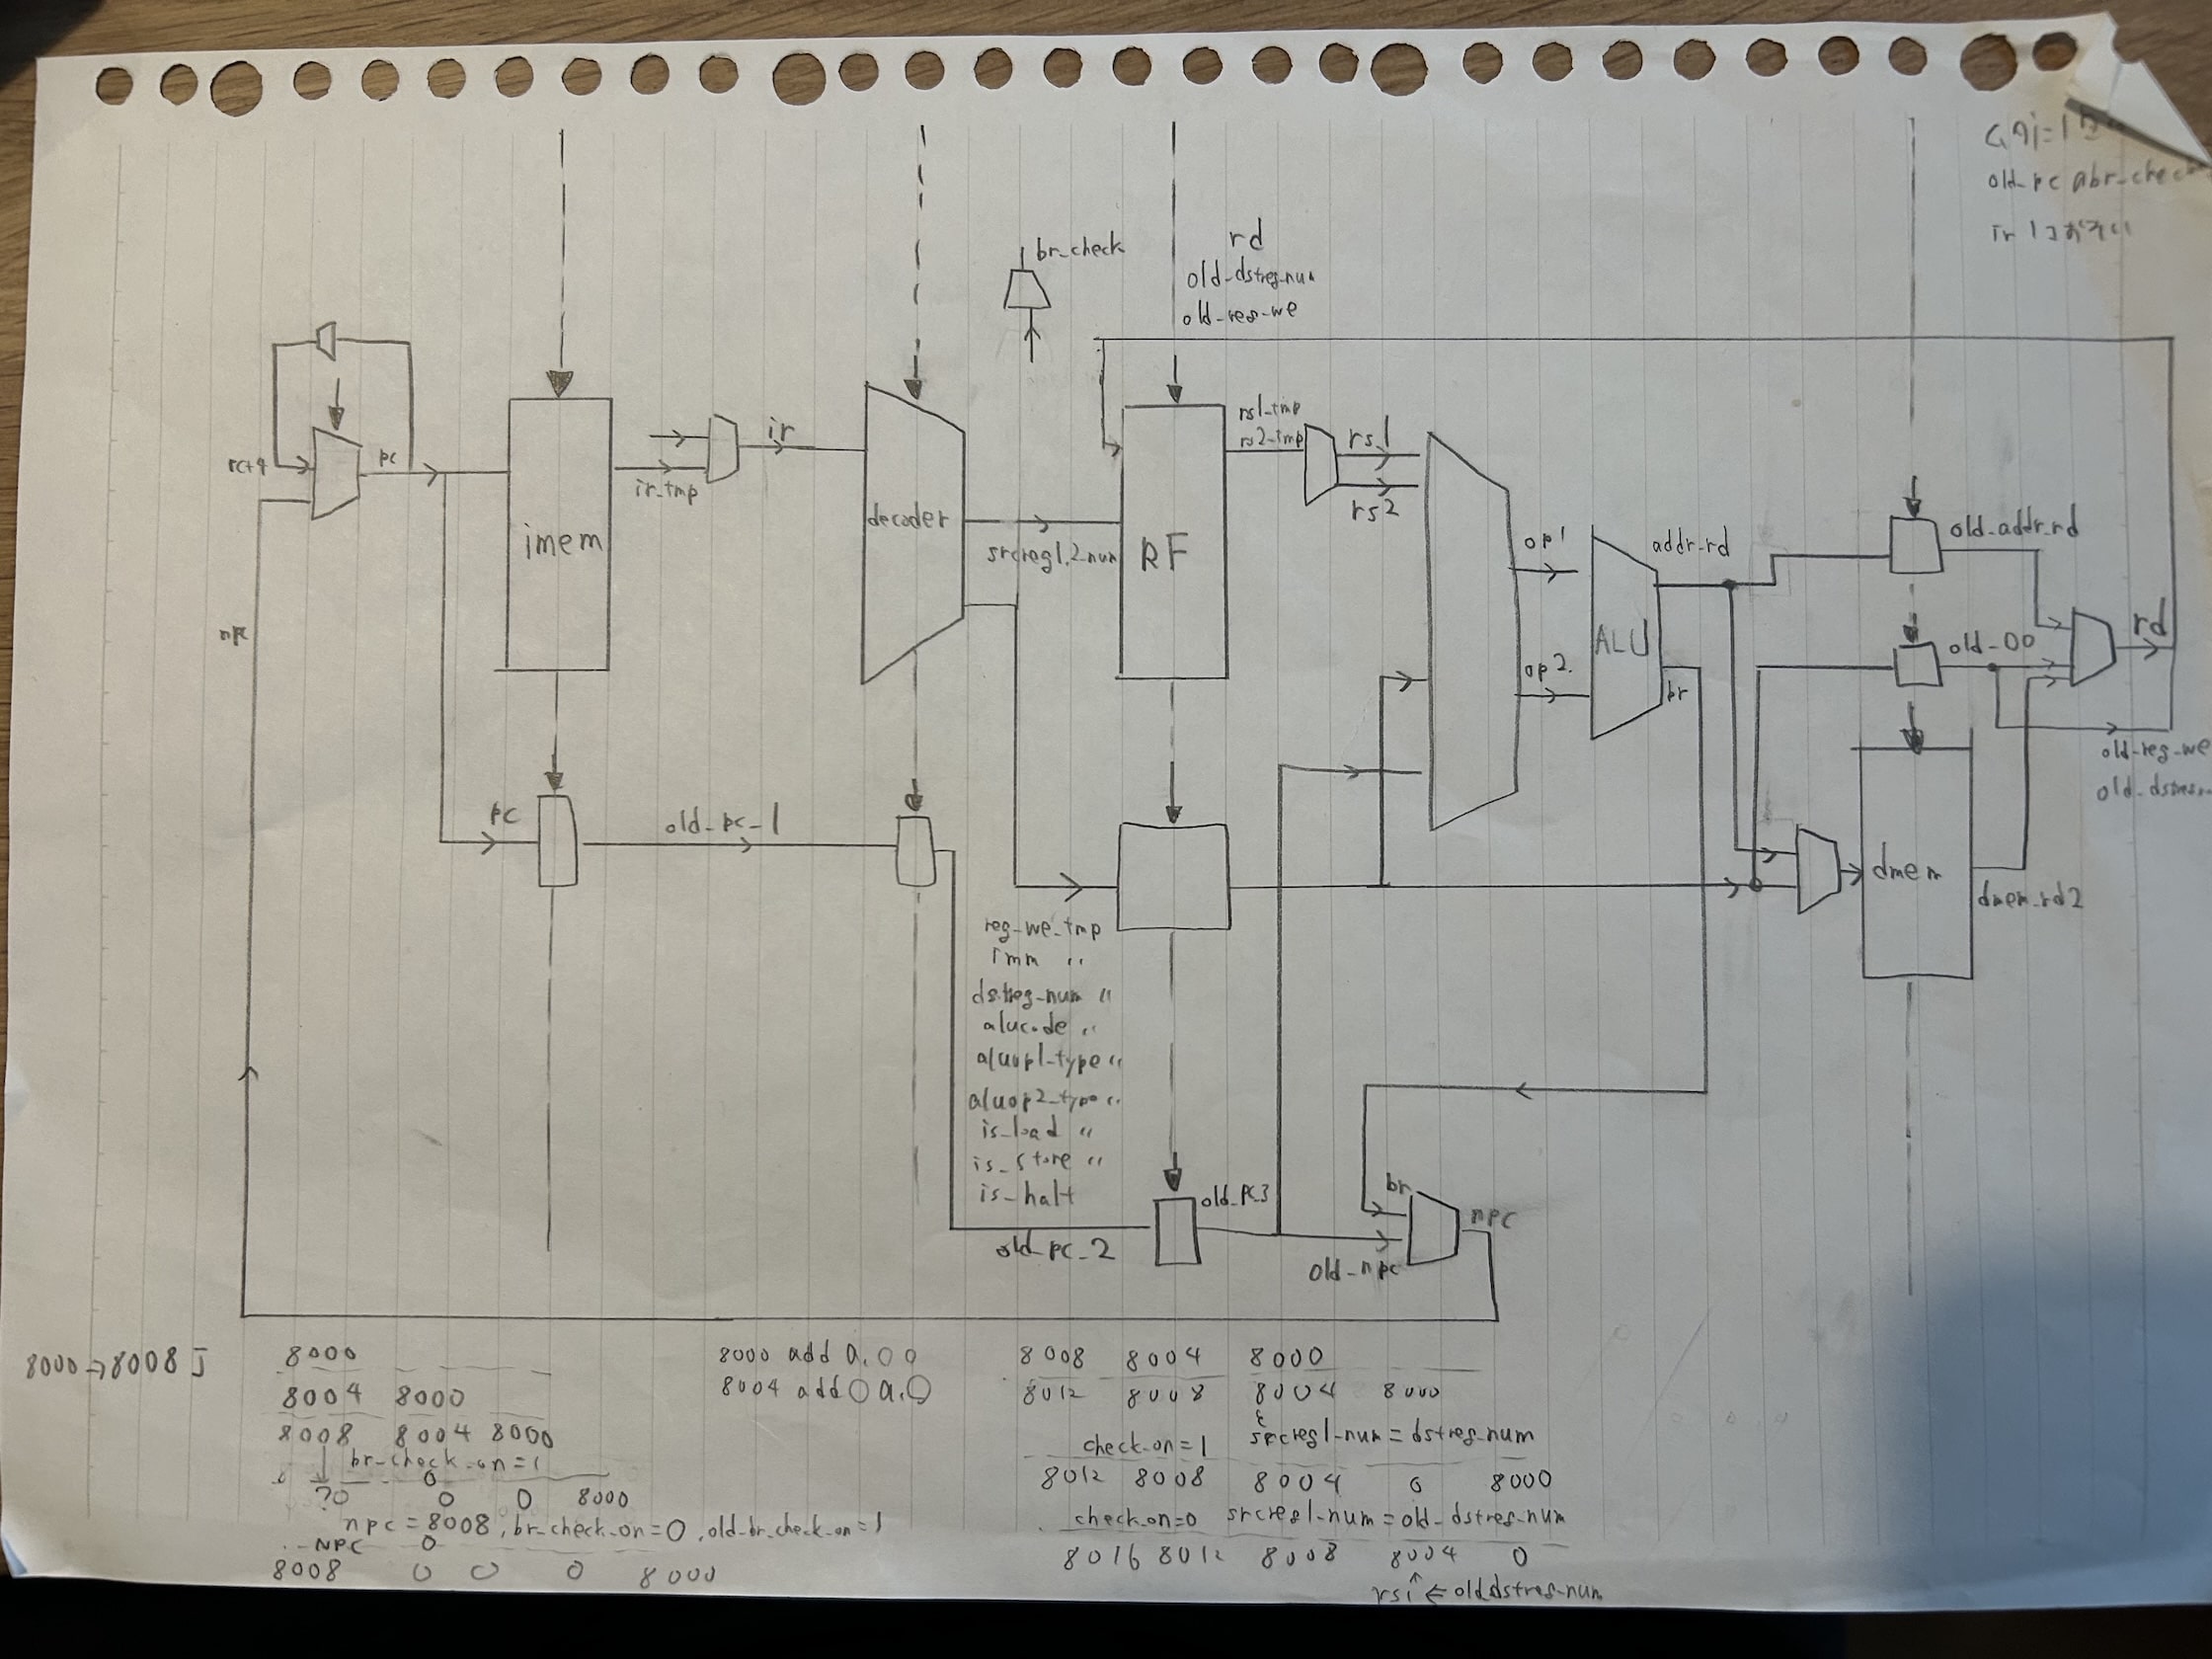 old_pc
ir
br_check
rd
old_dstreg_num
old_reg_we
pc+4
pc
ir_tmp
ir
imem
decoder
srcreg1,2_num
RF
rs1_tmp
rs2_tmp
rs1
rs2
op1
op2
ALU
addr_rd
br
old_addr_rd
old_OO
rd
old_reg_we
npc
pc
old_pc_1
dmem
dmem_rd2
reg_we_tmp
imm 〃
dstreg_num 〃
alucode 〃
aluop1_type 〃
aluop2_type 〃
is_load 〃
is_store 〃
is_halt
old_pc_2
old_pc3
br
old_npc
npc
8000→8008 J
8000
8004 8000
8008 8004 8000
br_check_on=1
0
?0 0 0 8000
npc=8008, br_check_on=0, old_br_check_on=1
NPC 0
8008 0 0 0 8000
8000 add a,00
8004 add 0a,0
8008 8004 8000
8012 8008 8004 8000
check_on=1 srcreg1_num=dstreg_num
8012 8008 8004 0 8000
check_on=0 srcreg1_num=old_dstreg_num
8016 8012 8008 8004 0
rs1 ← olddstreg_num